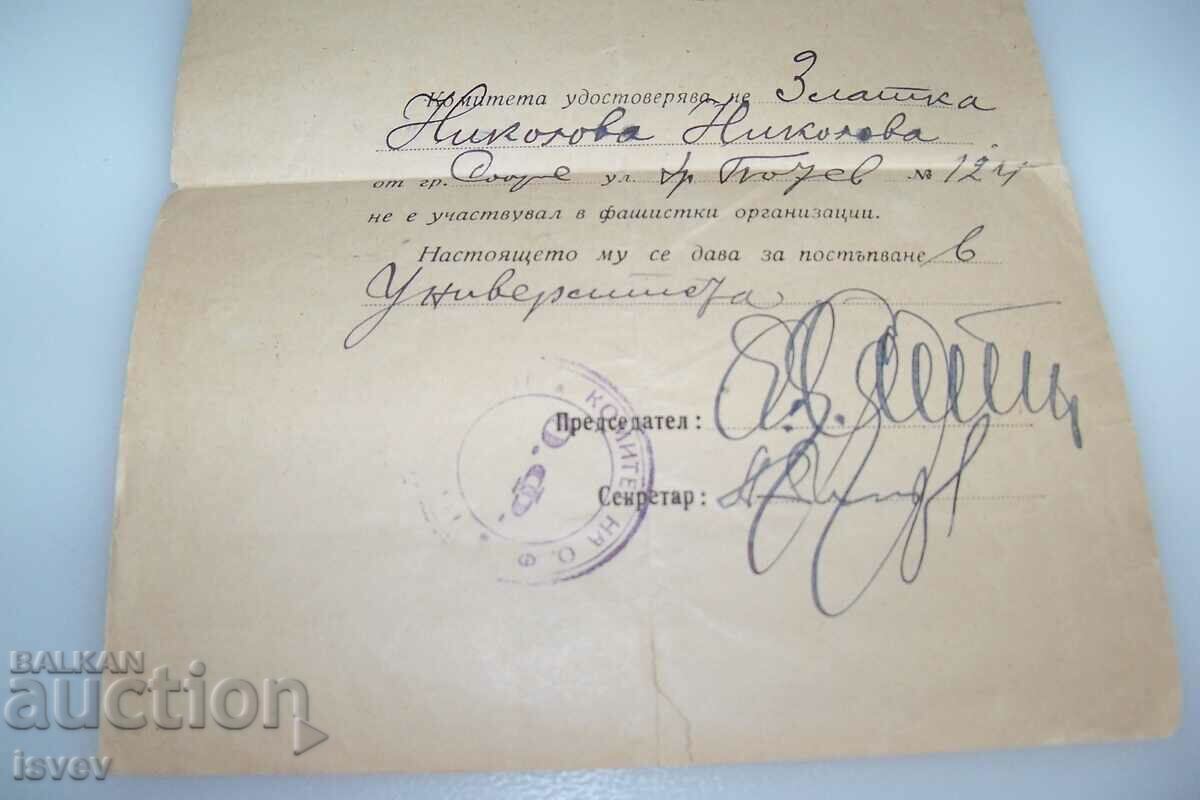 Комитета удостоверява че Златка
Николова Николова
от гр. ул. № 124
не е участвувал в фашистки организации.
Настоящето му се дава за постъпване в
Университета
Председател:
Секретар:
КОМИТЕТ НА О. Ф.
О. Ф.
BALKAN
auction
isvev